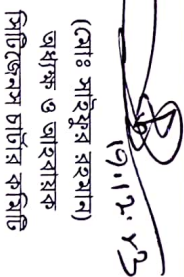 ১৭.১২.২৩
(মোঃ সাইফুর রহমান)
অধ্যক্ষ ও আহবায়ক
সিটিজেনস চার্টার কমিটি